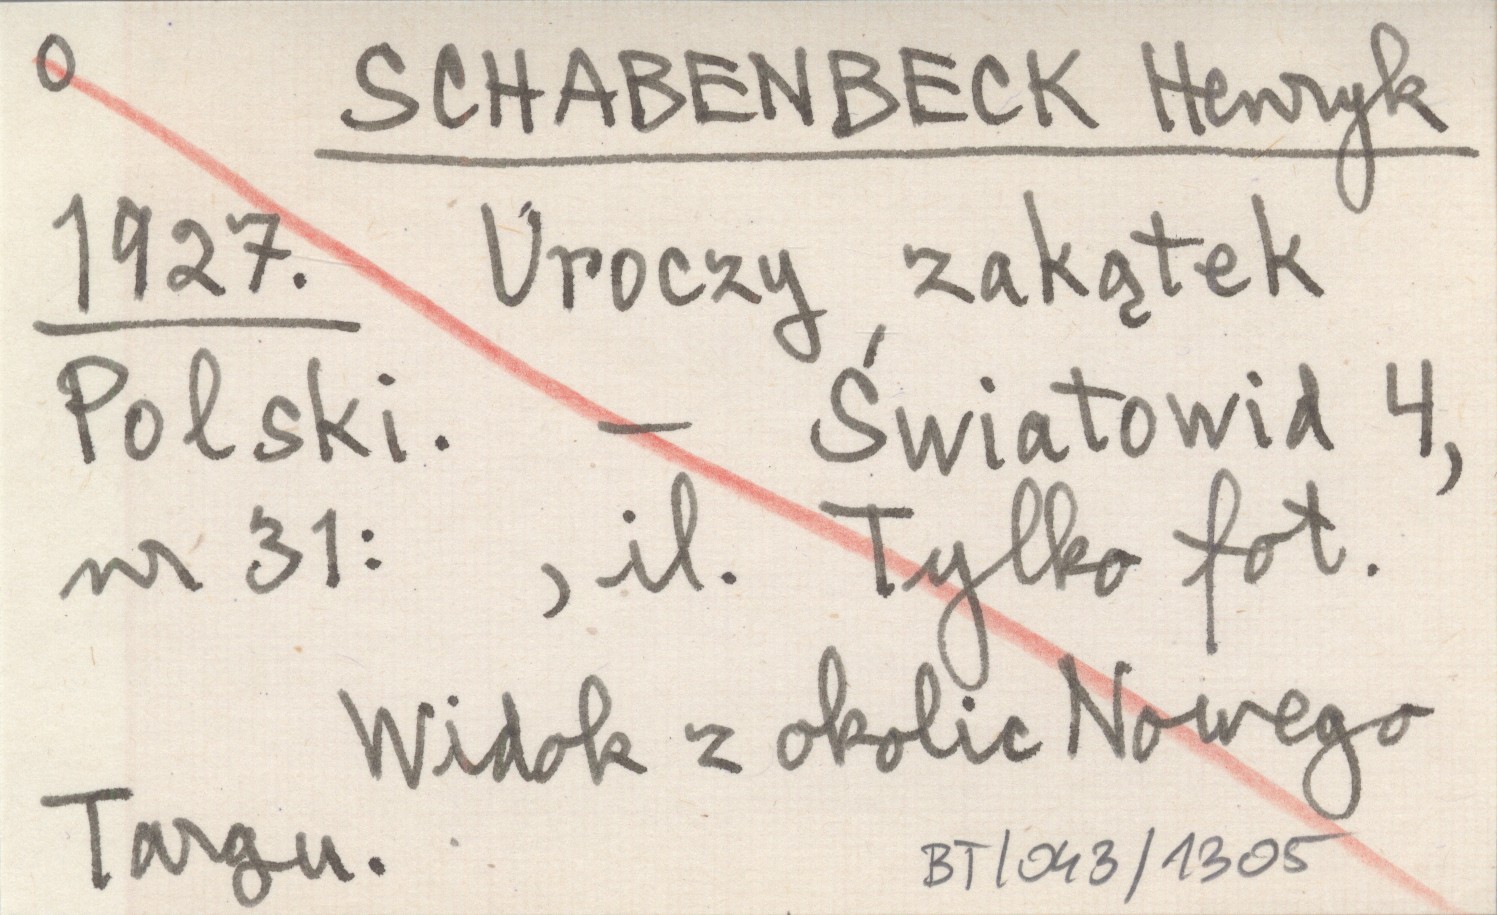 0 SCHABENBECK Henryk
1927. Uroczy zakątek
Polski. — Światowid 4,
nr 31: , il. Tylko fot.
Widok z okolic Nowego
Targu.
BT/043/1305